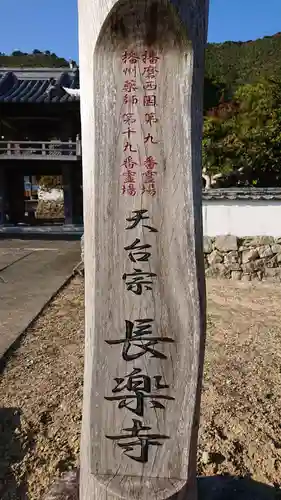 播磨西国第九番霊場
播州薬師第十九番霊場
天台宗
長樂寺